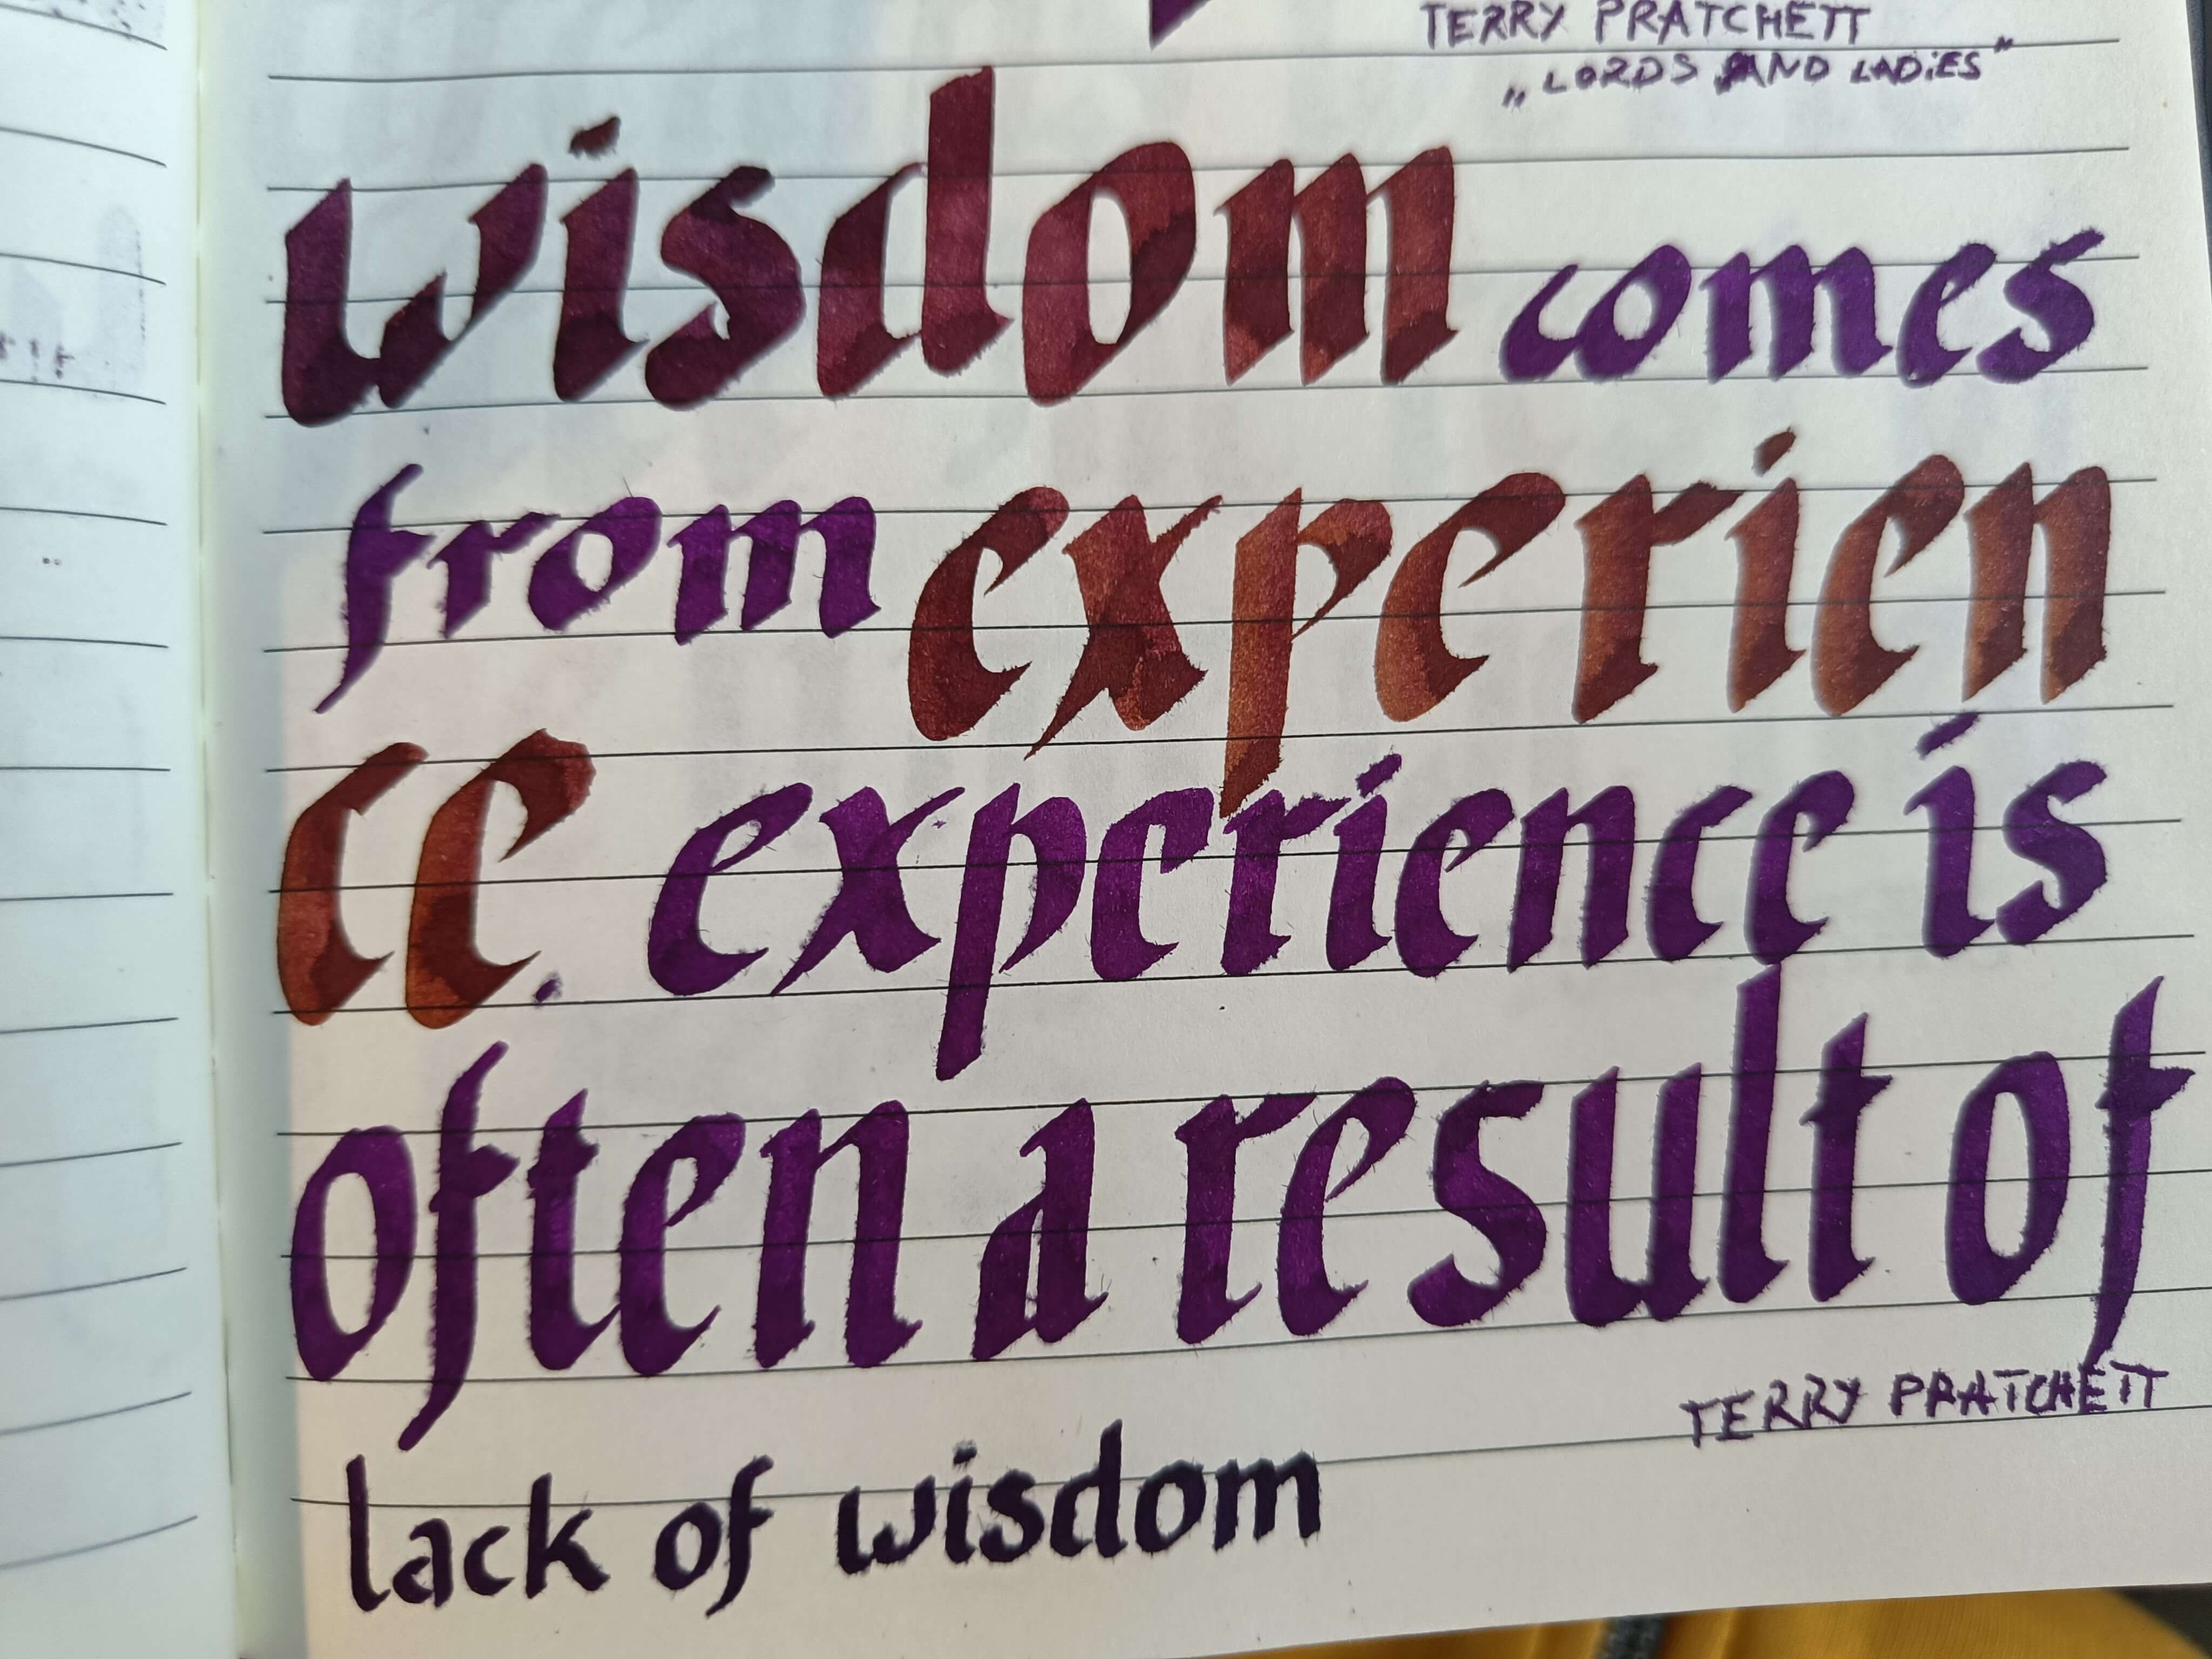 TERRY PRATCHETT
„LORDS AND LADiES"
wisdom comes
from experien
ce. experience is
often a result of
TERRY PRATCHETT
lack of wisdom